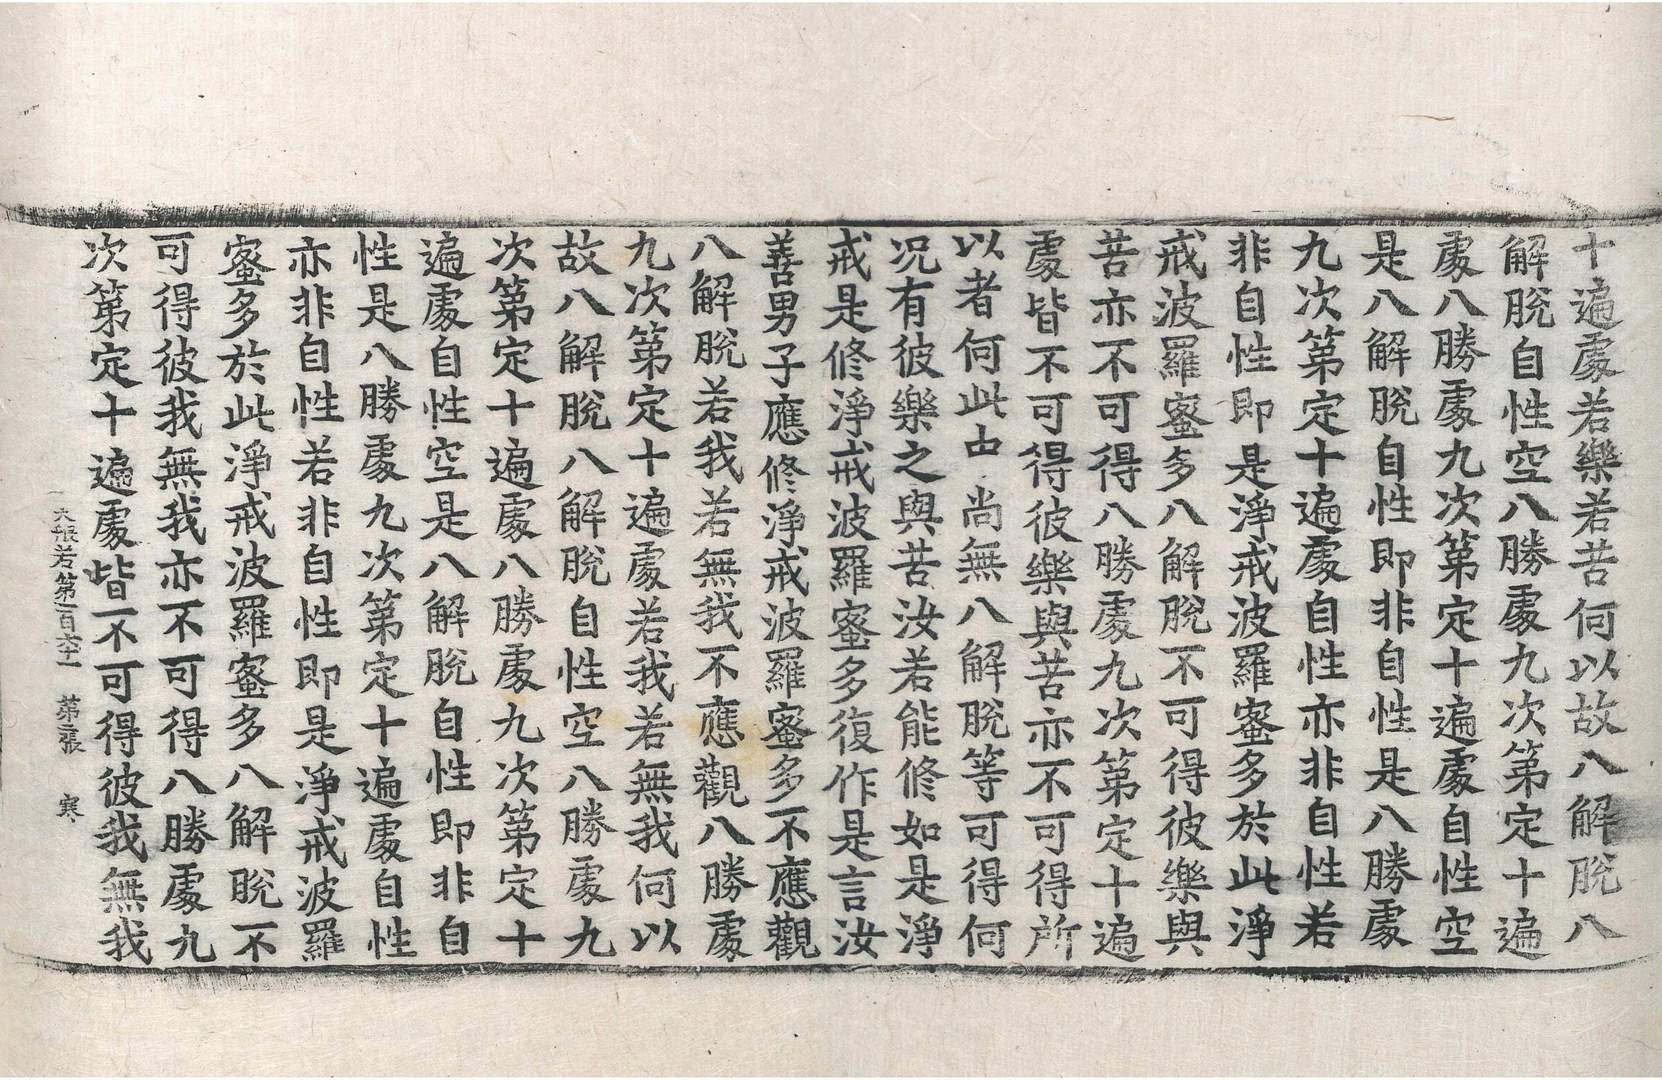 十遍處若樂若苦何以故八解脫八
解脫自性空八勝處九次第定十遍
處八勝處九次第定十遍處自性空
是八解脫自性即非自性是八勝處
九次第定十遍處自性亦非自性若
非自性即是淨戒波羅蜜多於此淨
戒波羅蜜多八解脫不可得彼樂與
苦亦不可得八勝處九次第定十遍
處皆不可得彼樂與苦亦不可得所
以者何此中尚無八解脫等可得何
況有彼樂之與苦汝若能修如是淨
戒是修淨戒波羅蜜多復作是言汝
善男子應修淨戒波羅蜜多不應觀
八解脫若我若無我不應觀八勝處
九次第定十遍處若我若無我何以
故八解脫八解脫自性空八勝處九
次第定十遍處八勝處九次第定十
遍處自性空是八解脫自性即非自
性是八勝處九次第定十遍處自性
亦非自性若非自性即是淨戒波羅
蜜多於此淨戒波羅蜜多八解脫不
可得彼我無我亦不可得八勝處九
次第定十遍處皆不可得彼我無我
大般若第百六十一 第張 寒